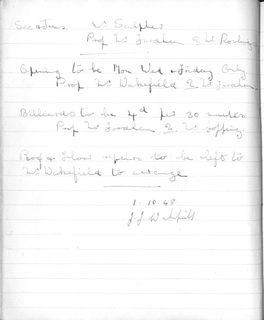 Sec & Tres Mr Sculpher
Prop Mr Farnham S. Mr
Opening to be Mon Wed & Friday Only
Prop Mr Wakefield S. Mr Farnham
Billiards to be 4d per 30 minutes
Prop Mr Farnham S. Mr Topping
Roof & Floor repairs to be left to
Mr Wakefield to arrange
1-10-48
J J Wakefield